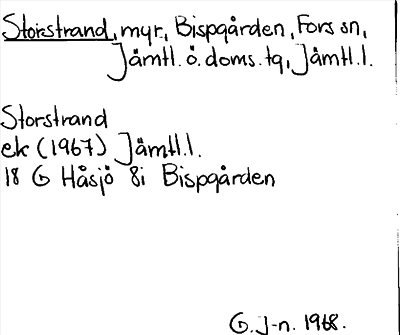 Storstrand, myr, Bispgården, Fors sn,
Jämtl. ö. doms. tg, Jämtl.l.
Storstrand
ek (1967) Jämtl.l.
18 G Håsjö 8i Bispgården
G. J-n. 1968.